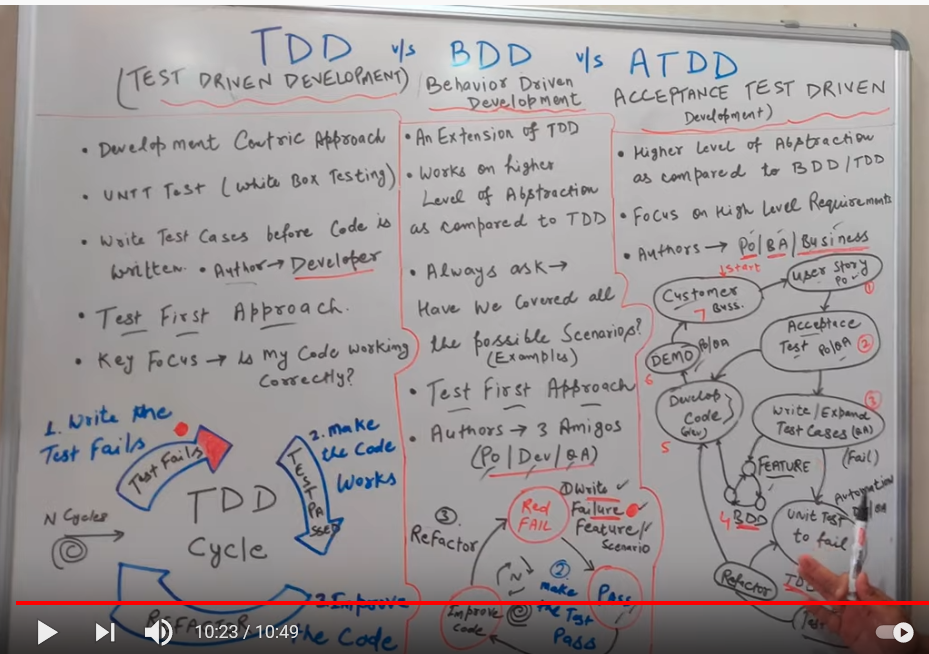 TDD v/s BDD v/s ATDD
(TEST DRIVEN DEVELOPMENT)
Behavior Driven
Development
ACCEPTANCE TEST DRIVEN
Development)
• Development Centric Approach
• UNIT Test (White Box Testing)
• Write Test Cases before Code is
written. • Author → Developer
• Test First Approach.
• Key Focus → Is my Code working
Correctly?
1. Write the
Test Fails
Test Fails
2. Make
the Code
Works
TEST PA
SSED
TDD
Cycle
N Cycles
REFACTOR
3. Improve
the Code
• An Extension of TDD
• Works on higher
Level of Abstraction
as compared to TDD
• Always ask →
Have We Covered all
the possible Scenarios?
(Examples)
• Test First Approach
• Authors → 3 Amigos
(Po/Dev/QA)
Red
FAIL
① Write
Failure
Feature/
Scenario
③
Refactor
N
②
make
the Test
Pass
Pass
Improve
Code
• Higher Level of Abstraction
as compared to BDD/TDD
• Focus on High Level Requirements
• Authors → Po/BA/Business
↓Start
Customer
Buss.
7
User Story
Po
①
Acceptace
Test Po/BA
②
DEMO
6
Develop
Code
(dev)
5
Write/Expand
Test Cases (QA)
③
(Fail)
FEATURE
4 BDD
Automation
Unit Test
to fail
Refactor
(Test
10:23 / 10:49